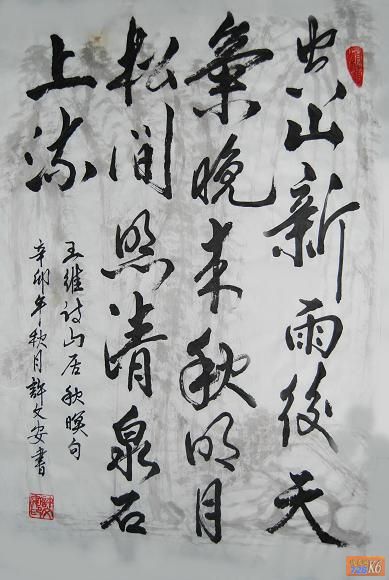 空山新雨後天
氣晚来秋明月
松间照清泉石
上流
王維诗山居秋暝句
辛卯年秋月許文安書
K6